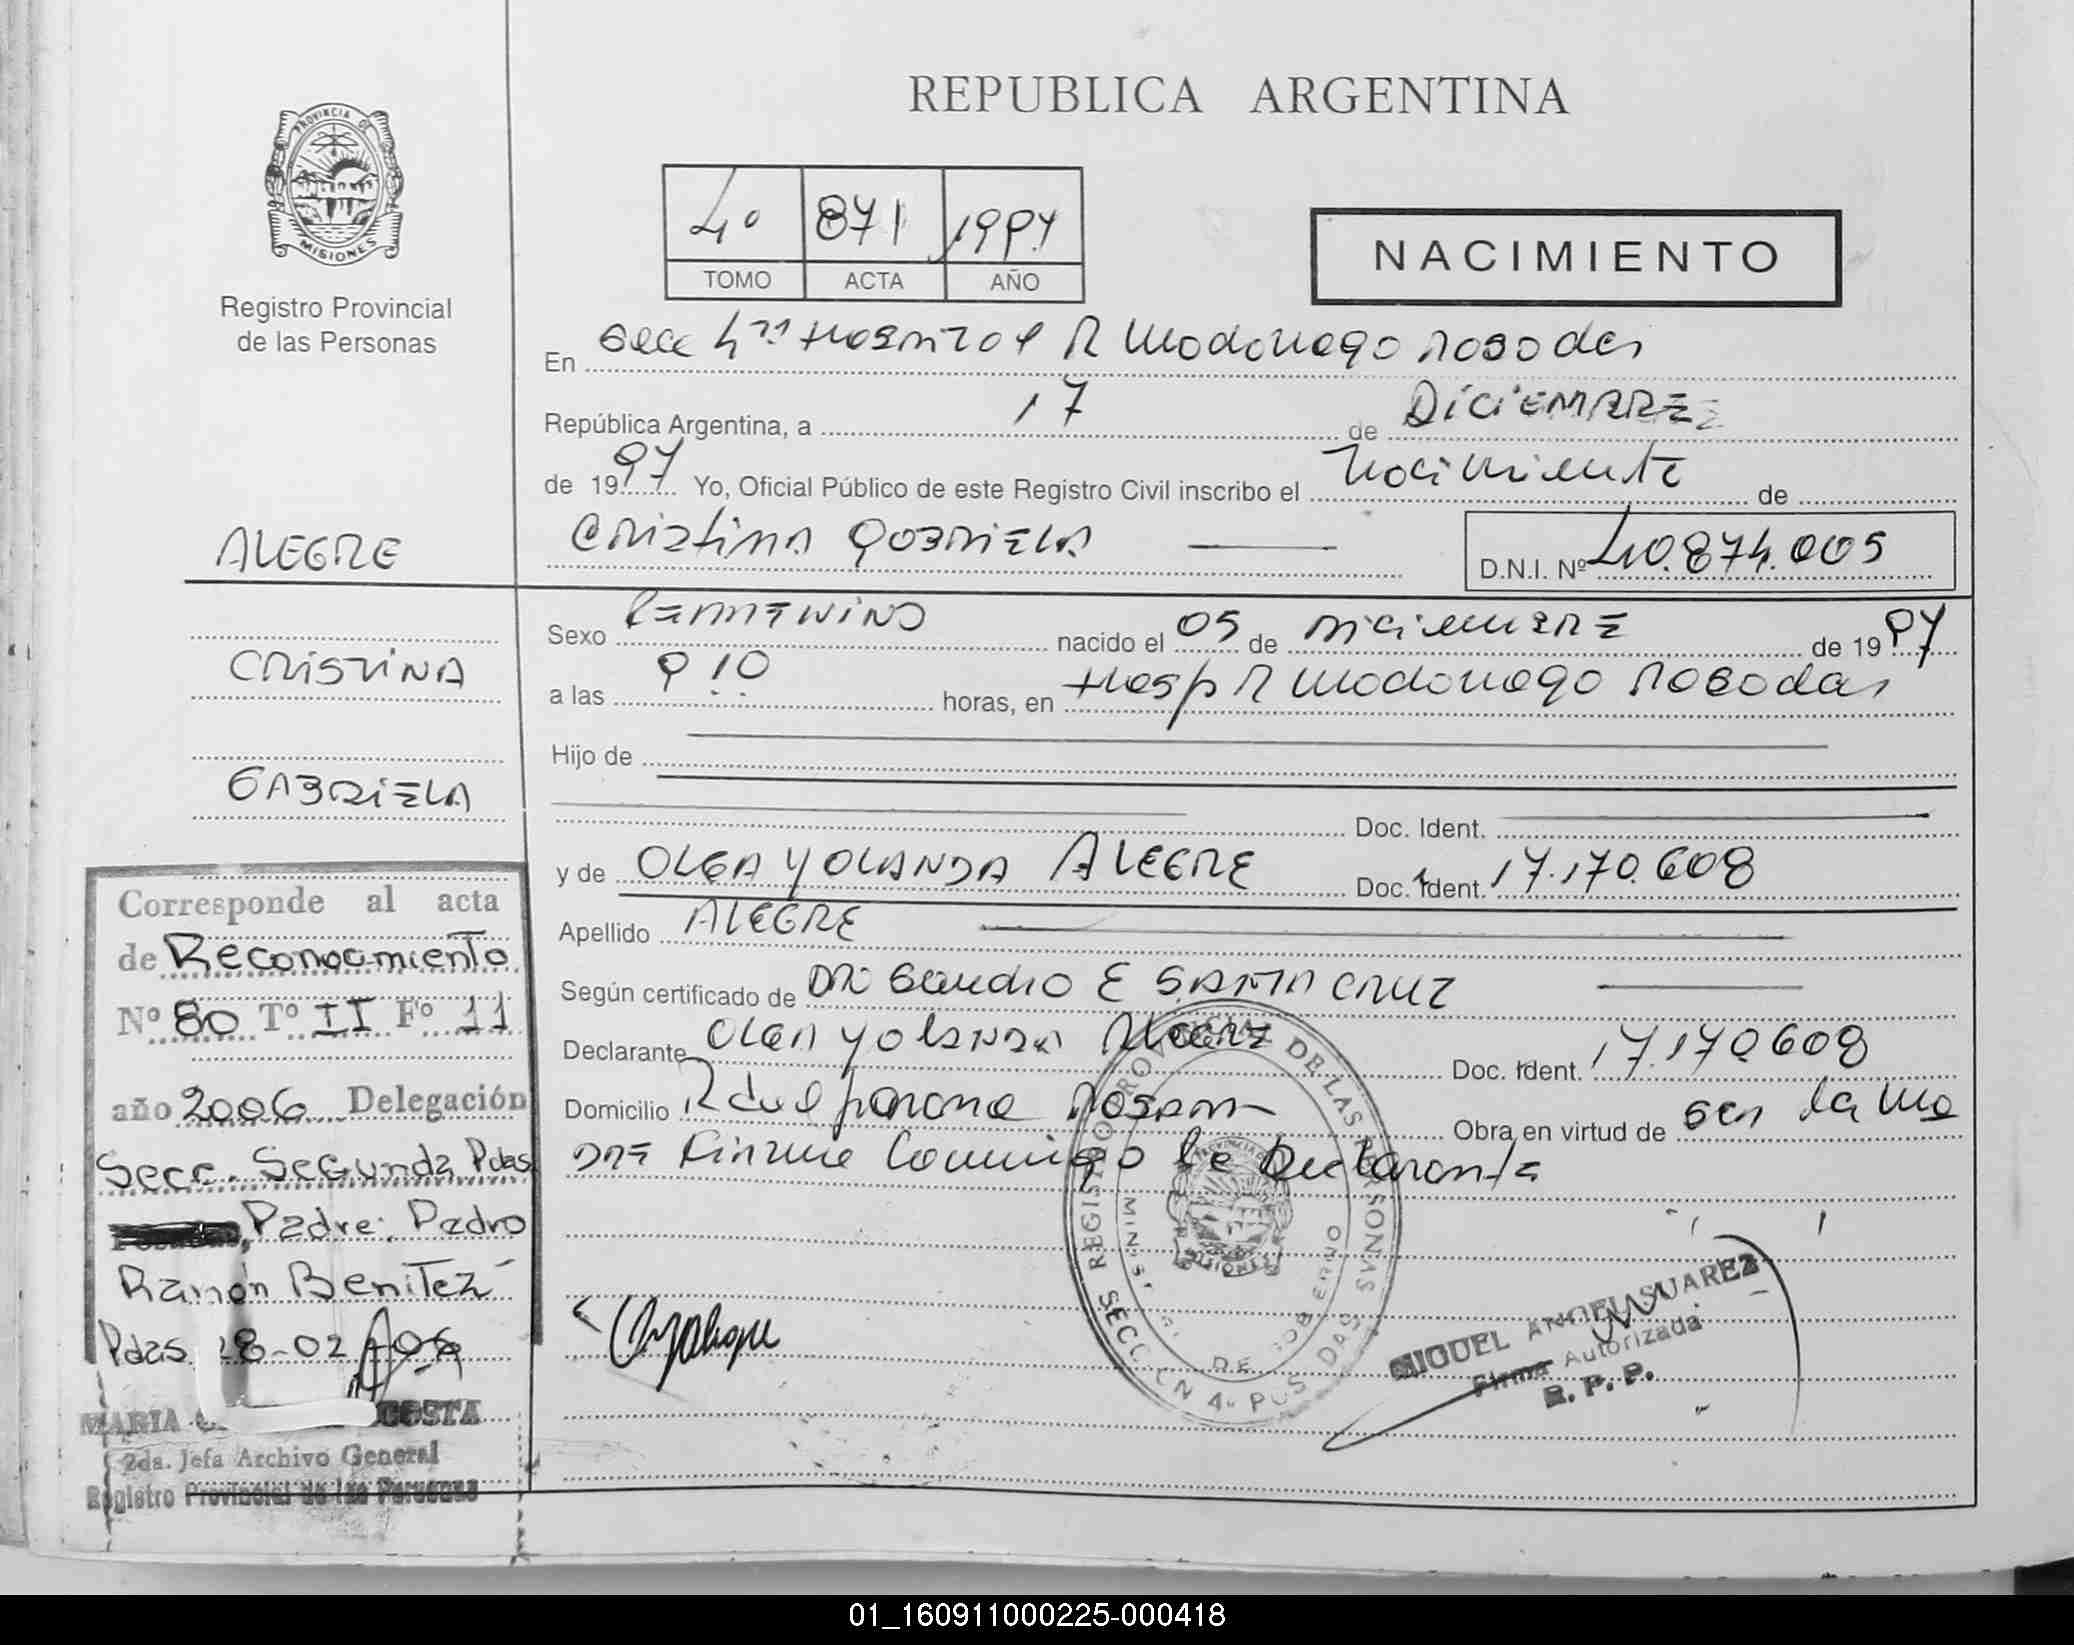 REPUBLICA ARGENTINA
PROVINCIA DE
MISIONES
Registro Provincial
de las Personas
4º 871 1997
TOMO ACTA AÑO
NACIMIENTO
En Secc 4ta Hospital R Madariaga Posadas
República Argentina, a 17 de DICIEMBRE
de 1997 Yo, Oficial Público de este Registro Civil inscribo el Nacimiento de
CRISTINA GABRIELA D.N.I. Nº 40.874.005
ALEGRE
CRISTINA
GABRIELA
Sexo FEMENINO nacido el 05 de DICIEMBRE de 1997
a las 9 10 horas, en Hosp R Madariaga Posadas
Hijo de
Doc. Ident.
y de OLGA YOLANDA ALEGRE Doc. Ident. 17.170.608
Apellido ALEGRE
Según certificado de DR Claudio E SANTA CRUZ
Declarante OLGA YOLANDA ALEGRE Doc. Ident. 17.170.608
Domicilio Obra en virtud de ser la Ma
DRE Firma Conmigo la Declarante
Corresponde al acta
de Reconocimiento
Nº 80 Tº II Fº 11
año 2006 Delegación
Secc. Segunda Pdas
Padre: Pedro
Ramón Benitez
Pdas 28-02-06
MARIA COSTA
2da. Jefa Archivo General
Registro Provincial de las Personas
REGISTRO PROVINCIAL DE LAS PERSONAS
MISIONES
MIGUEL ANGEL SUAREZ
Firma Autorizada
R. P. P.
01_160911000225-000418